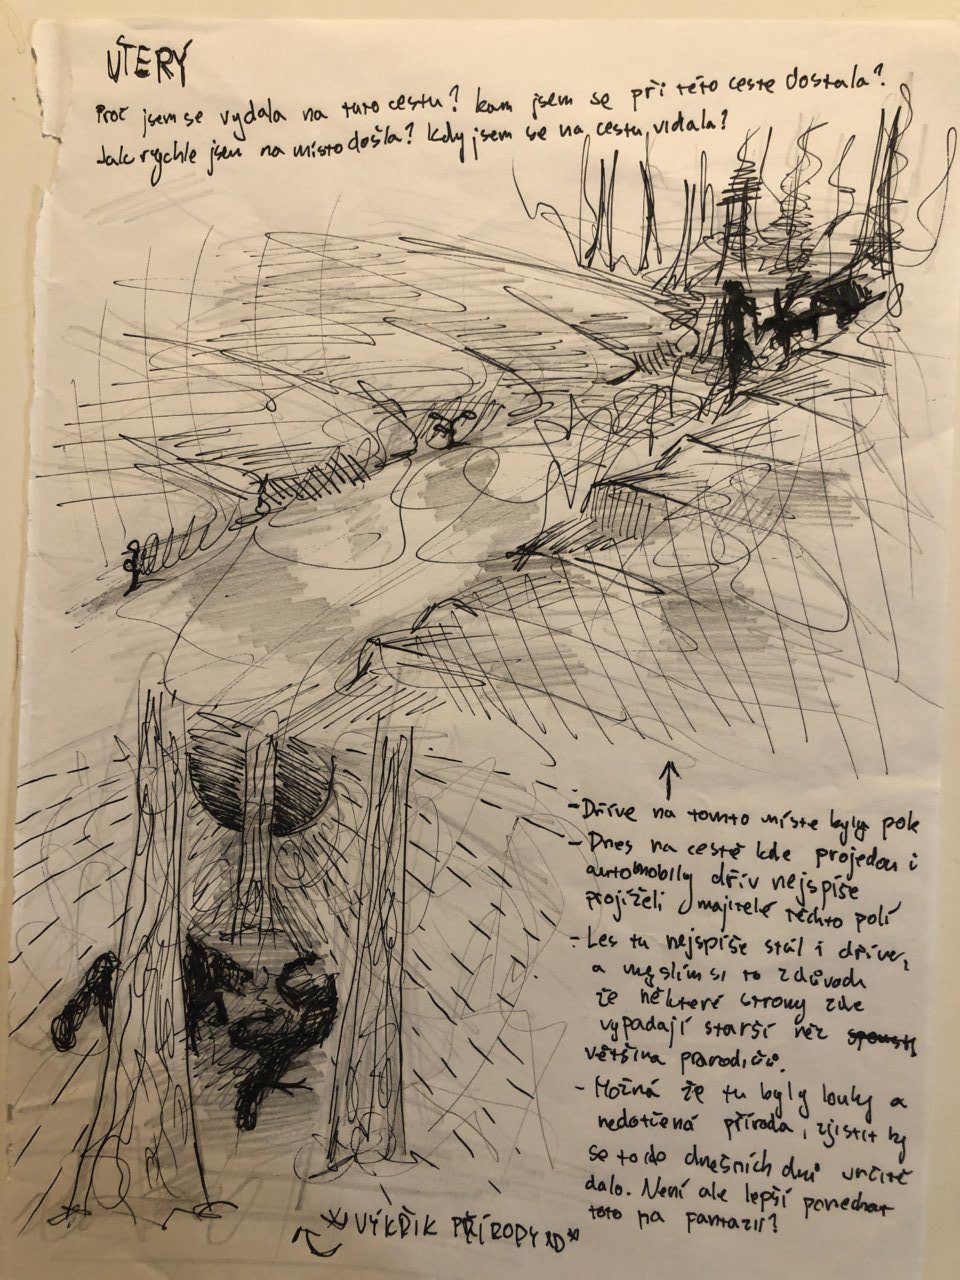 ÚTERÝ
Proč jsem se vydala na tuto cestu? kam jsem se při této cestě dostala?
Jak rychle jsem na místo došla? kdy jsem se na cestu vidala?
- Dříve na tomto míste byly pole
- Dnes na cestě kde projedou i
automobily dřív nejspíše
projížděli majitelé těchto polí
- Les tu nejspíše stál i dříve,
a myslím si to z důvodu
že některé stromy zde
vypadají starší než
většina prarodičů.
- Možná že tu byly louky a
nedotčená příroda, zjistit by
se to do dnešních dnů určitě
dalo. Není ale lepší ponechat
toto na fantazii?
VÝKŘIK PŘÍRODY